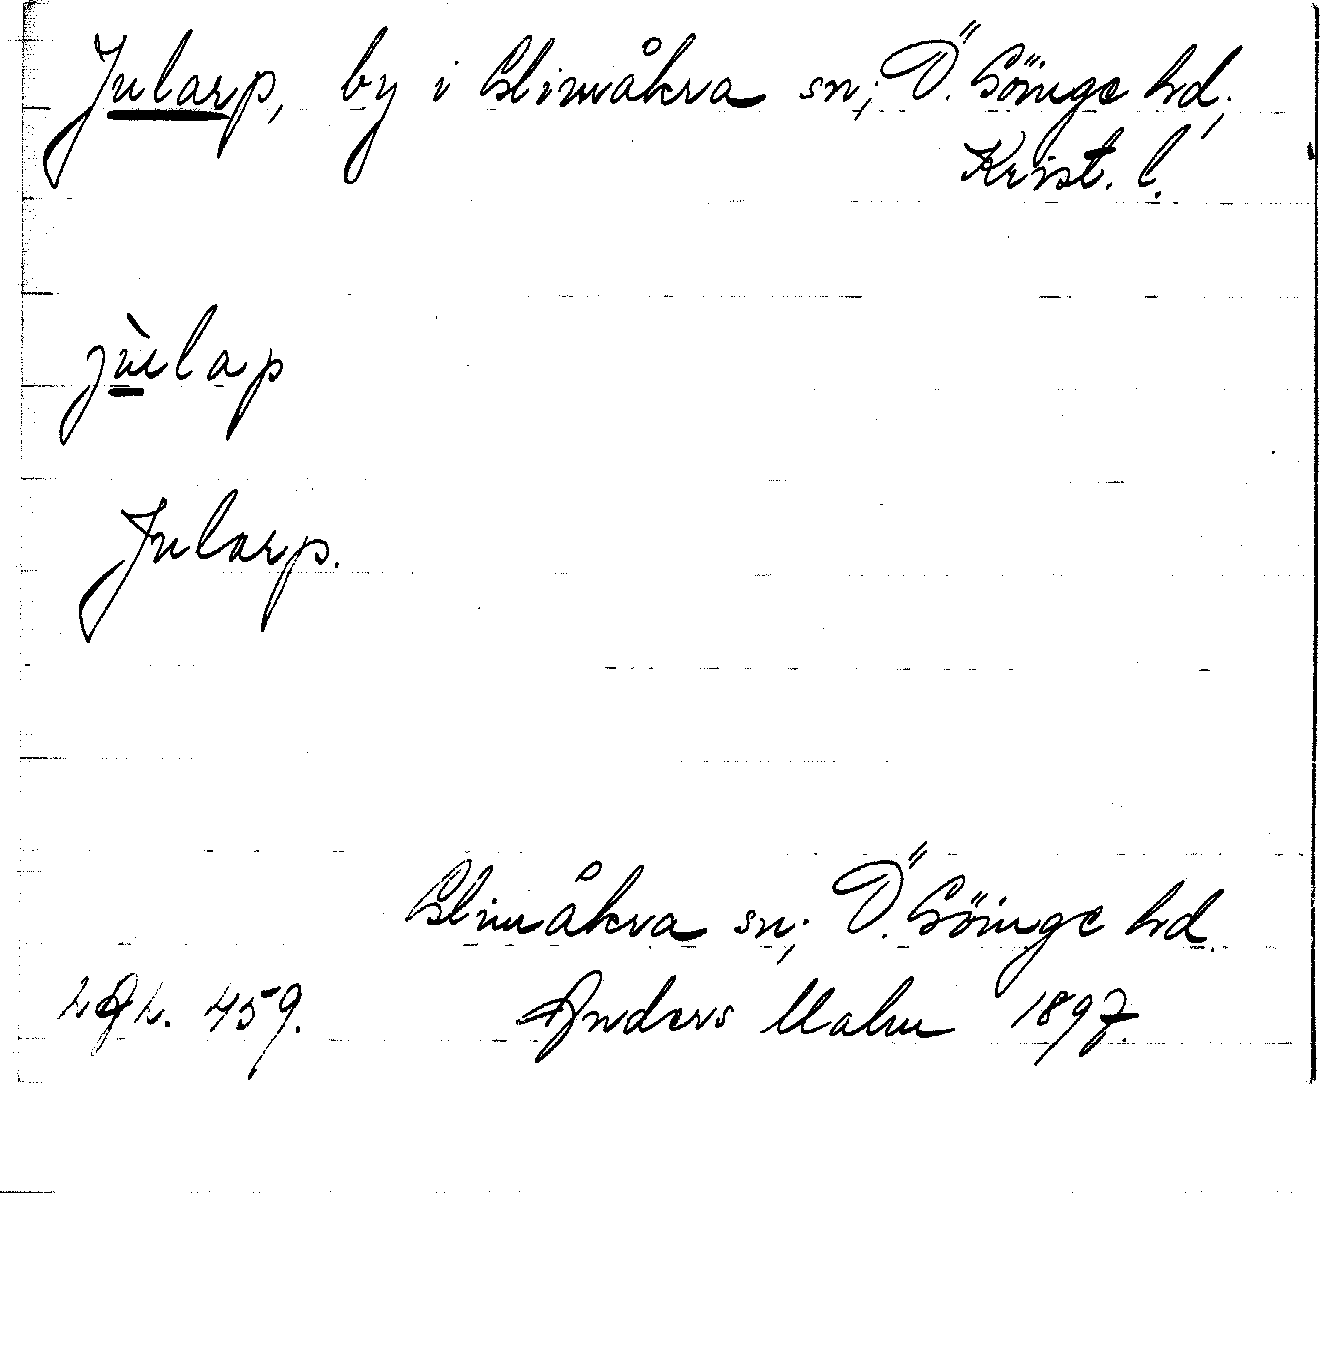 Jularp, by i Glimåkra sn; Ö. Göinge hd;
Krist. l.
jùlap
Jularp.
Glimåkra sn; Ö. Göinge hd.
459. Anders Malm 1897.